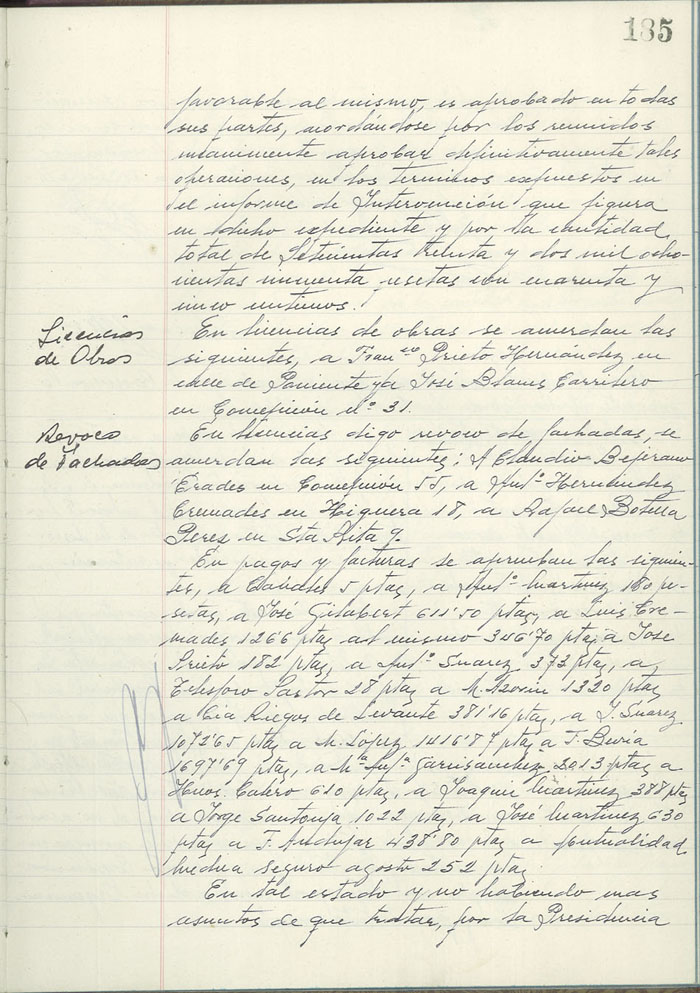 185
favorable al mismo, es aprobado en todas
sus partes, acordándose por los reunidos
unanimente aprobar definitivamente tales
operaciones, en los terminos expuestos en
el informe de Intervención que figura
en dicho expediente y por la cantidad
total de Setecientas treinta y dos mil ocho-
cientas cincuenta pesetas con cuarenta y
cinco centimos.
Licencias
de Obras
En licencias de obras se acuerdan las
siguientes, a Franco Prieto Hernández en
calle de Poniente y a José Blanes Carritero
en Concepción nº 31.
Revoco
de Fachadas
En licencias digo revoco de fachadas, se
acuerdan las siguientes: A Claudio Bejerano
Erades en Concepción 55, a Antº Hernández
Cremades en Higuera 18, a Rafael Botella
Perez en Sta Rita 9.
En pagos y facturas se aprueban las siguien-
tes, a Canales 5 ptas, a Antº Martinez 180 pe-
setas, a José Gilabert 611'50 ptas, a Luis Cre-
mades 1266 ptas al mismo 346'70 ptas, a José
Prieto 182 ptas, a Antº Suarez 373 ptas, a
Telesforo Pastor 28 ptas a M. Azorin 1320 ptas
a Cia Riegos de Levante 381'16 ptas, a J. Suarez
1072'65 ptas a M. López 1416'87 ptas a T. Beviá
1697'69 ptas, a Mª Antª Garcisanchez 2913 ptas a
Hnos. Calero 610 ptas, a Joaquin Martinez 388 ptas
a Jorge Santonja 1022 ptas, a José Martinez 630
ptas a F. Andujar 438'80 ptas a Mutualidad
seguro agosto 252 ptas
En tal estado y no habiendo mas
asuntos de que tratar, por la Presidencia